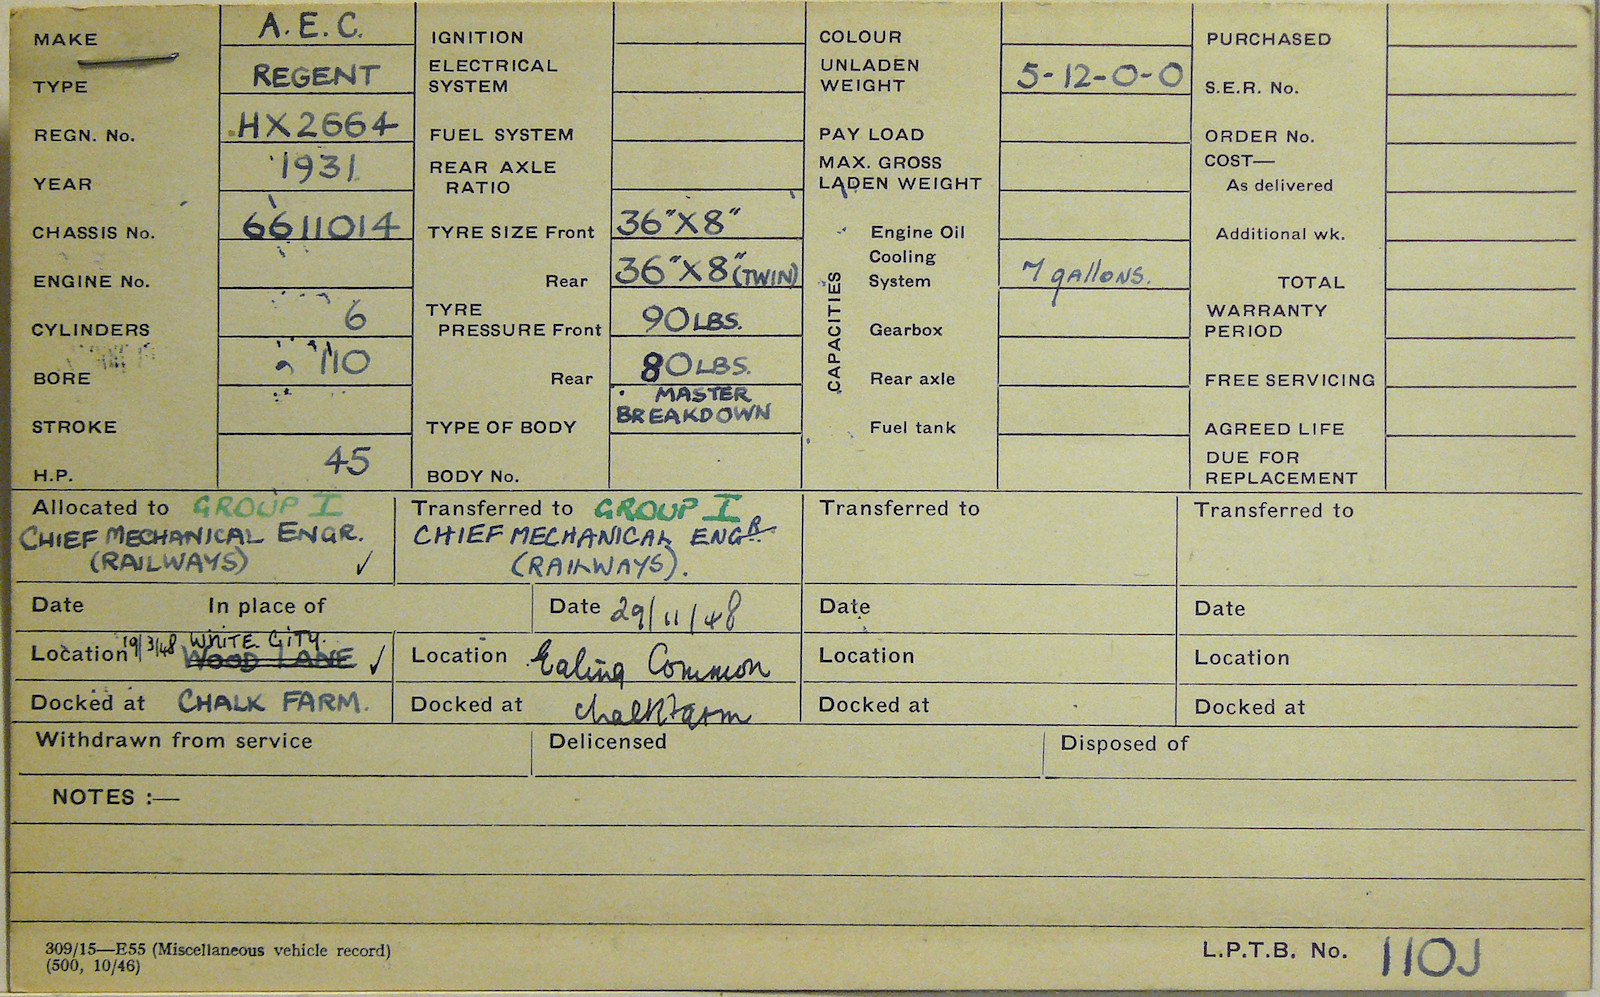 MAKE A.E.C.
TYPE REGENT
REGN. No. HX2664
YEAR 1931
CHASSIS No. 6611014
ENGINE No.
CYLINDERS 6
BORE 110
STROKE
H.P. 45
IGNITION
ELECTRICAL
SYSTEM
FUEL SYSTEM
REAR AXLE
RATIO
TYRE SIZE Front 36"X8"
Rear 36"X8" (TWIN)
TYRE
PRESSURE Front 90LBS.
Rear 80LBS.
TYPE OF BODY MASTER
BREAKDOWN
BODY No.
COLOUR
UNLADEN
WEIGHT 5-12-0-0
PAY LOAD
MAX. GROSS
LADEN WEIGHT
CAPACITIES
Engine Oil
Cooling
System 7 gallons.
Gearbox
Rear axle
Fuel tank
PURCHASED
S.E.R. No.
ORDER No.
COST—
As delivered
Additional wk.
TOTAL
WARRANTY
PERIOD
FREE SERVICING
AGREED LIFE
DUE FOR
REPLACEMENT
Allocated to GROUP I
CHIEF MECHANICAL ENGR.
(RAILWAYS) ✓
Transferred to GROUP I
CHIEF MECHANICAL ENGR
(RAILWAYS).
Transferred to
Transferred to
Date In place of
Date 29/11/48
Date
Date
Location 19/3/48 WHITE CITY.
WOOD LANE ✓
Location Ealing Common
Location
Location
Docked at CHALK FARM.
Docked at Chalk Farm
Docked at
Docked at
Withdrawn from service
Delicensed
Disposed of
NOTES :—
309/15—E55 (Miscellaneous vehicle record)
(500, 10/46)
L.P.T.B. No. 110J